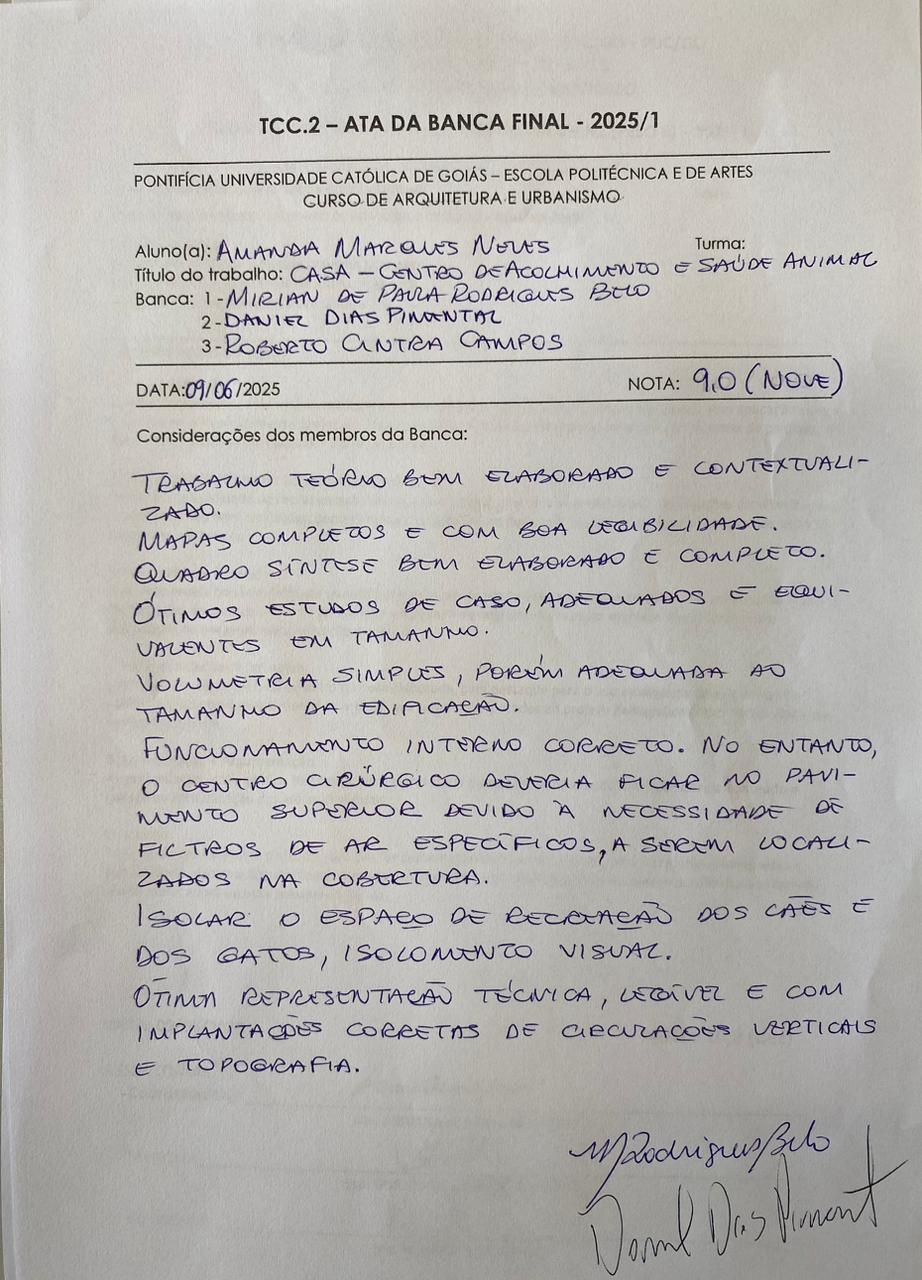 TCC.2 – ATA DA BANCA FINAL - 2025/1
PONTIFÍCIA UNIVERSIDADE CATÓLICA DE GOIÁS – ESCOLA POLITÉCNICA E DE ARTES
CURSO DE ARQUITETURA E URBANISMO
Aluno(a): AMANDA MARQUES NEVES Turma:
Título do trabalho: CASA – CENTRO DE ACOLHIMENTO E SAÚDE ANIMAL
Banca: 1 - MIRIAN DE PAULA RODRIGUES BELO
2 - DANIEL DIAS PIMENTAL
3 - ROBERTO CINTRA CAMPOS
DATA: 09/06/2025 NOTA: 9,0 (NOVE)
Considerações dos membros da Banca:
TRABALHO TEÓRIO BEM ELABORADO E CONTEXTUALI-
ZADO.
MAPAS COMPLETOS E COM BOA LEGIBILIDADE.
QUADRO SÍNTESE BEM ELABORADO E COMPLETO.
ÓTIMOS ESTUDOS DE CASO, ADEQUADOS E EQUI-
VALENTES EM TAMANHO.
VOLUMETRIA SIMPLES, PORÉM ADEQUADA AO
TAMANHO DA EDIFICAÇÃO.
FUNCIONAMENTO INTERNO CORRETO. NO ENTANTO,
O CENTRO CIRÚRGICO DEVERIA FICAR NO PAVI-
MENTO SUPERIOR DEVIDO À NECESSIDADE DE
FILTROS DE AR ESPECÍFICOS, A SEREM LOCALI-
ZADOS NA COBERTURA.
ISOLAR O ESPAÇO DE RECREAÇÃO DOS CÃES E
DOS GATOS, ISOLOMENTO VISUAL.
ÓTIMA REPRESENTAÇÃO TÉCNICA, LEGÍVEL E COM
IMPLANTAÇÕES CORRETAS DE CIRCULAÇÕES VERTICAIS
E TOPOGRAFIA.
MRodriguesBelo
Daniel Dias Piment